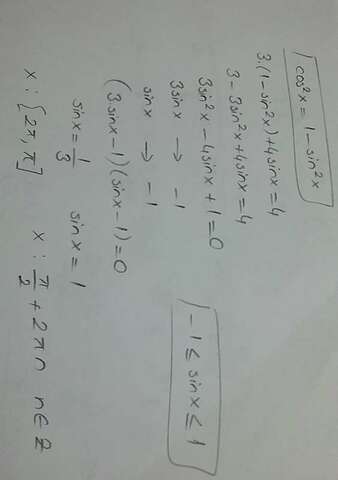 cos²x = 1 - sin²x
3.(1-sin²x)+4sinx=4
3-3sin²x+4sinx=4
3sin²x-4sinx+1=0
3sinx → -1
sinx → -1
-1 ≤ sinx ≤ 1
(3sinx-1)(sinx-1)=0
sinx=1/3 sinx=1
x: {2π, π] x: π/2 + 2πn n∈Z